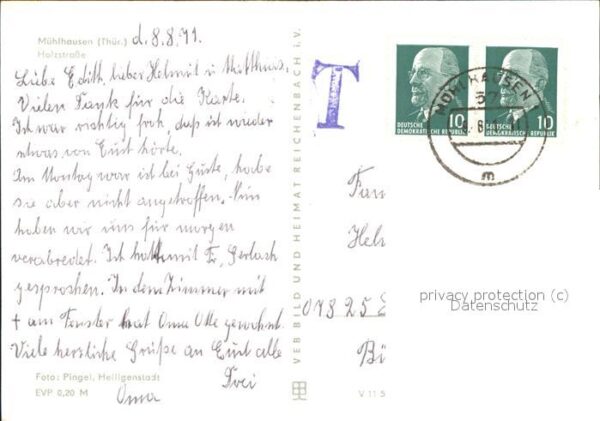 Mühlhausen (Thür.)
Holzstraße
d. 8.8.71.
Liebe Edith, lieber Helmut u. Matthias.
Vielen Dank für die Karte.
Ich war richtig froh, daß ich wieder
etwas von Euch hörte.
Am Montag war ich bei Guste, habe
sie aber nicht angetroffen. Nun
haben wir uns für morgen
verabredet. Ich hatte mit Fr. Gerlach
gesprochen. In dem Zimmer mit
+ am Fenster hat Oma Otte gewohnt.
Viele herzliche Grüße an Euch alle
Drei
Oma
Foto: Pingel, Heiligenstadt
EVP 0,20 M
VEB BILD UND HEIMAT REICHENBACH i. V.
V 11 5
T
10
DEUTSCHE
DEMOKRATISCHE REPUBLIK
10
DEUTSCHE
DEMOKRATISCHE REPUBLIK
MÜHLHAUSEN
m
Fam
Heln
privacy protection (c)
Datenschutz
Bü